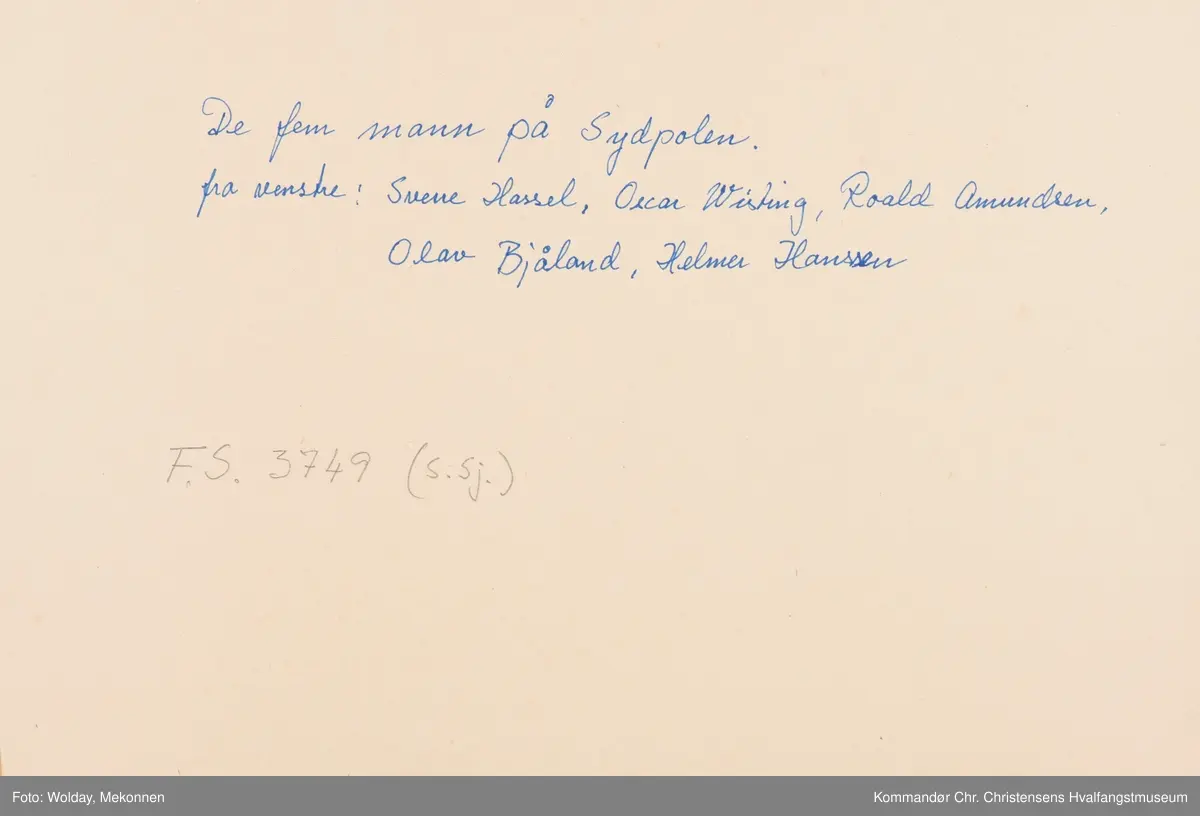 De fem mann på Sydpolen.
fra venstre: Svere Hassel, Oscar Wisting, Roald Amundsen,
Olav Bjåland, Helmer Hanssen
F.S. 3749 (s.sj.)
Foto: Wolday, Mekonnen
Kommandør Chr. Christensens Hvalfangstmuseum